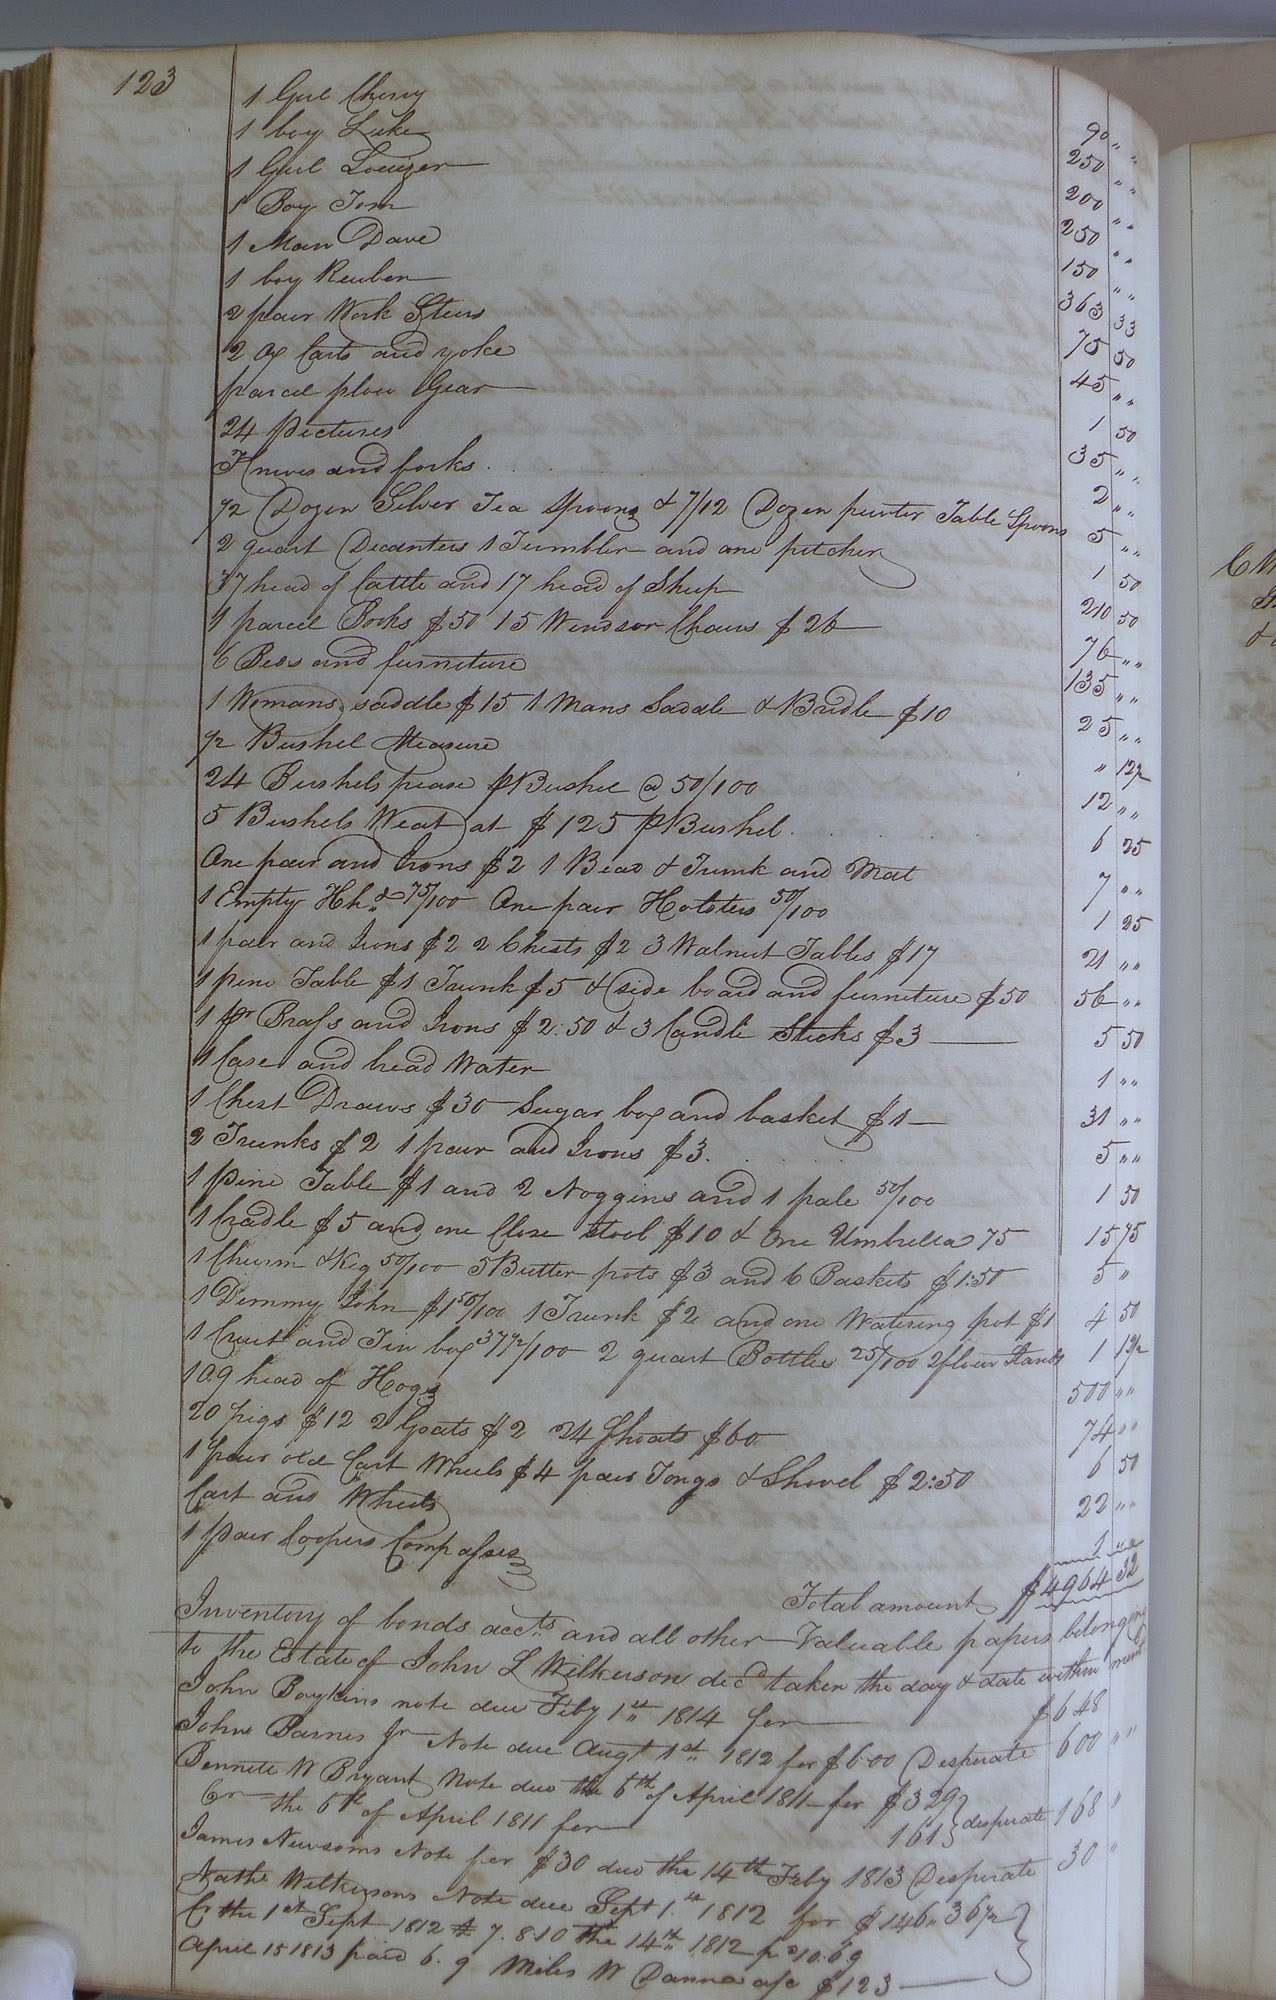 123
1 Girl Cherry 90 " "
1 boy Luke 250 " "
1 Girl Louizer 200 " "
1 Boy Tom 250 " "
1 Man Dave 150 " "
1 boy Reuben 363 33
2 pair Work Steers 75 50
2 Ox Carts and yoke 45 " "
parcel plow Gear 1 50
24 Pictures 35 " "
Knives and forks 2 " "
1/2 Dozen Silver Tea Spoons & 7/12 Dozen pewter Table Spoons 5 " "
2 quart Decanters 1 Tumbler and one pitcher 1 50
37 head of Cattle and 17 head of Sheep 210 50
1 parcel Books $50 15 Windsor Chairs $26 76 " "
6 Beds and furniture 135 " "
1 Womans saddle $15 1 Mans Saddle & Bridle $10 25 " "
1/2 Bushel Measure " 12 1/2
24 Bushels pease p Bushel @ 50/100 12 " "
5 Bushels Weat at $125 p Bushel 6 25
One pair and Irons $2 1 Bead & Trunk and Mat 7 " "
1 Empty Hhd 75/100 One pair Holsters 50/100 1 25
1 pair and Irons $2 2 Chests $2 3 Walnut Tables $17 21 " "
1 pine Table $1 Trunk $5 & side board and furniture $50 56 " "
1 pr Brass and Irons $2:50 & 3 Candle Sticks $3 5 50
1 Case and head Water 1 " "
1 Chest Draws $30 Sugar box and basket $1 31 " "
2 Trunks $2 1 pair and Irons $3. 5 " "
1 Pine Table $1 and 2 Noggins and 1 pale 50/100 1 50
1 Cradle $5 and one Close Stool $10 & One Umbrella 75 15 75
1 Churm & Keg 50/100 5 Butter pots $3 and 6 Baskets $1:50 5 "
1 Dimmy John $1 50/100 1 Trunk $2 and one Watering pot $1 4 50
1 Cruit and Tin box 37 1/2/100 2 quart Bottles 25/100 2 flour Stands 1 12 1/2
109 head of Hogs 500 " "
20 pigs $12 2 Goats $2 24 Shoats $60 74 " "
1 pair old Cart Wheels $4 pair Tongs & Shovel $2:50 6 50
Cart and Wheels 22 " "
1 pair Coopers Compasses 1 " "
Total amount $4964 32
Inventory of bonds accts and all other Valuable papers belonging
to the Estate of John L Wilkerson decd taken the day & date within ment
John Boykins note due Feby 1st 1814 for $648
John Barnes Jr Note due Augt 1st 1812 for $600 Desperate 600 " "
Bennett W Bryant Note due the 5th of April 1811 for $329 } desperate 168 "
Cr the 6th of April 1811 for 161
James Newsoms Note for $30 due the 14th Feby 1813 Desperate 30 "
Nathl Wilkersons Note due Sept 1st 1812 for $146.36 1/2 }
Cr the 1st Sept 1812 $ 7.810 the 14th 1812 10.69
April 15 1813 paid 6.9 Miles W Danna a/c $123